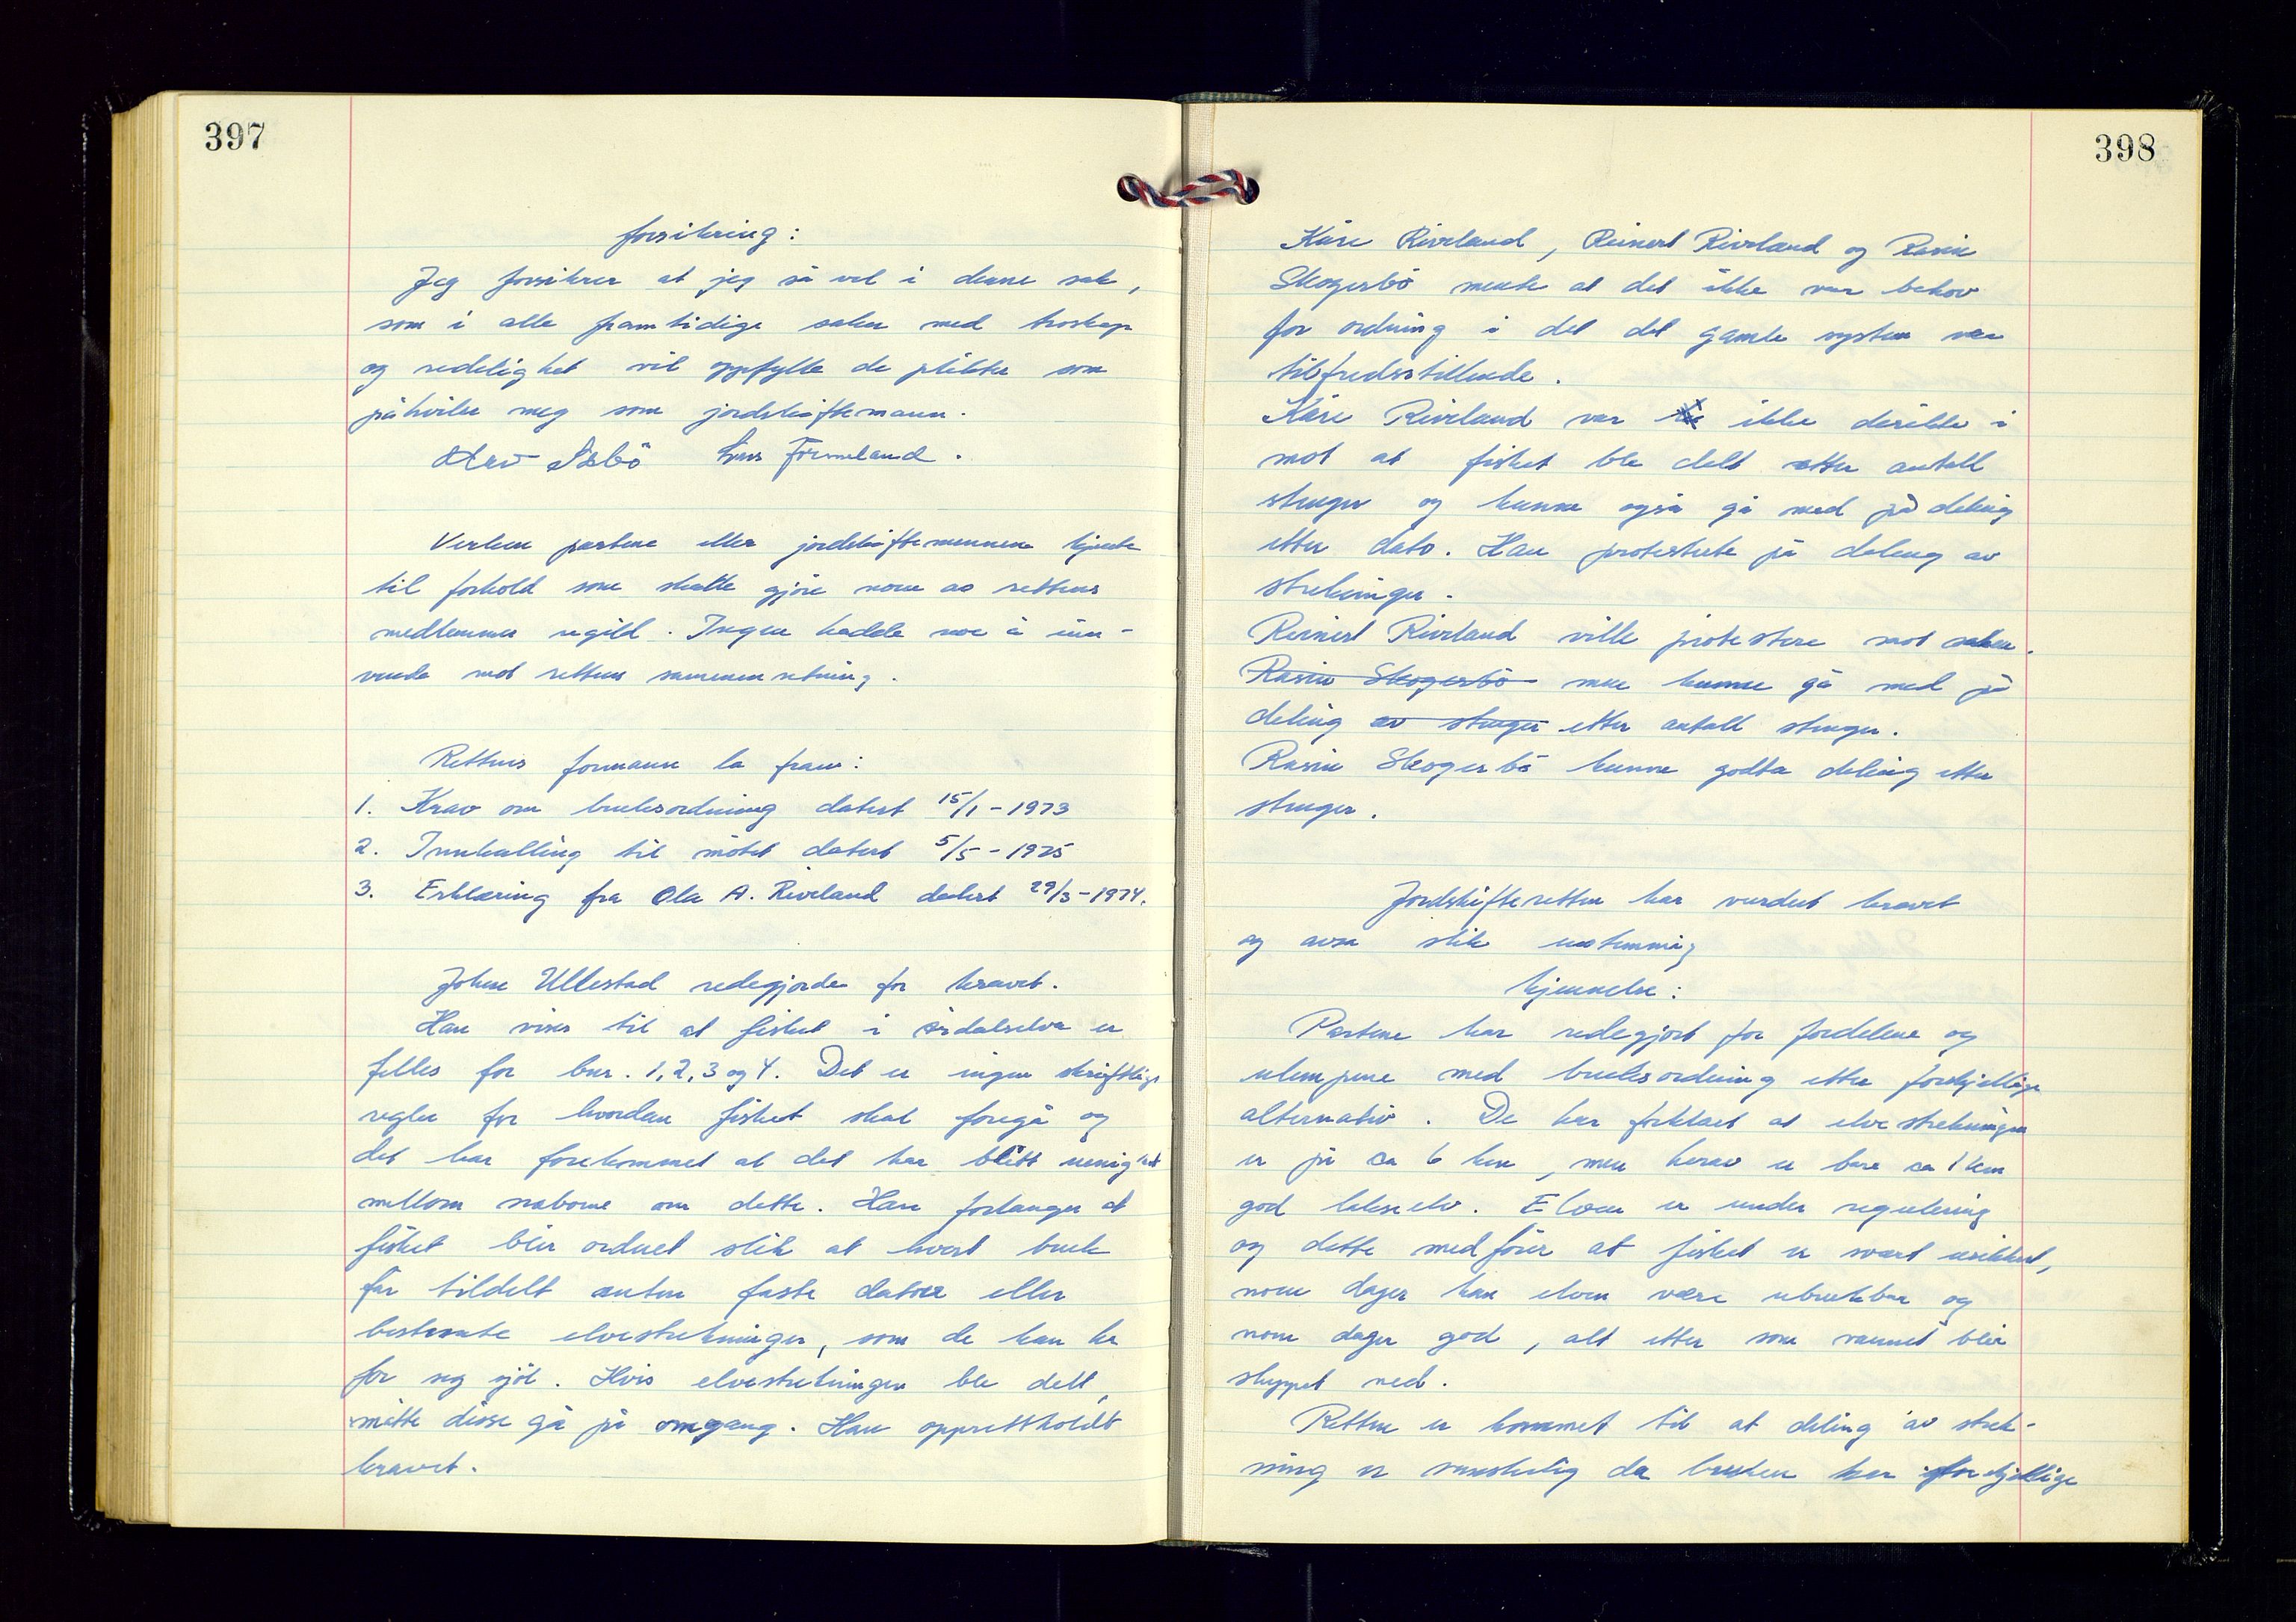 397
forsikring:
Jeg forsikrer at jeg så vel i denne sak,
som i alle framtidige saker med troskap
og redelighet vil oppfylle de plikter som
påhviler meg som jordskiftemann.
Lars Förreland.
Verken partene eller jordskiftemennene kjente
til forhold som skulle gjöre noen av rettens
medlemmer ugild. Ingen hadde noe å inn-
vende mot rettens sammensetning.
Rettens formann la fram:
1. Krav om bruksordning datert 15/1-1973
2. Innkalling til mötet datert 5/5-1975
3. Erklæring fra Ola A. Riveland datert 29/3-1974.
John Ullestad redegjorde for kravet.
Han viser til at fisket i årdalselva er
felles for bnr. 1, 2, 3 og 4. Det er ingen skriftlige
regler for hvordan fisket skal foregå og
det har forekommet at det har blitt uenighet
mellom naboene om dette. Han forlanger at
fisket blir ordnet slik at hvert bruk
får tildelt enten faste datoer eller
bestemte elvestrekninger, som de kan ha
for seg sjöl. Hvis elvestrekningen ble delt,
måtte disse gå på omgang. Han opprettholdt
kravet.
398
Kåre Riveland, Reinert Riveland og Rasm
Skogerbö mente at det ikke var behov
for ordning i det det gamle system var
tilfredsstillende.
Kåre Riveland var ikke direkte i
mot at fisket ble delt etter antall
stenger og kunne også gå med på deling
etter dato. Han protesterte på deling av
strekninger.
Reinert Riveland ville protestere mot saken.
Rasm Skogerbö men kunne gå med på
deling av stenger etter antall stenger.
Rasm Skogerbö kunne godta deling etter
stenger.
Jordskifteretten har vurdert kravet
og avsa slik enstemmig
kjennelse:
Partene har redegjort for fordelene og
ulempene med bruksordning etter forskjellige
alternativ. De har forklart at elvestrekningen
er på ca 6 km, men herav er bare ca 1 km
god lakseelv. Elven er under regulering
og dette medförer at fisket er svært usikkert,
noen dager kan elven være ubrukbar og
noen dager god, alt etter som vannet blir
sluppet ned.
Retten er kommet til at deling av strek-
ning er vanskelig da bruken har forskjellige